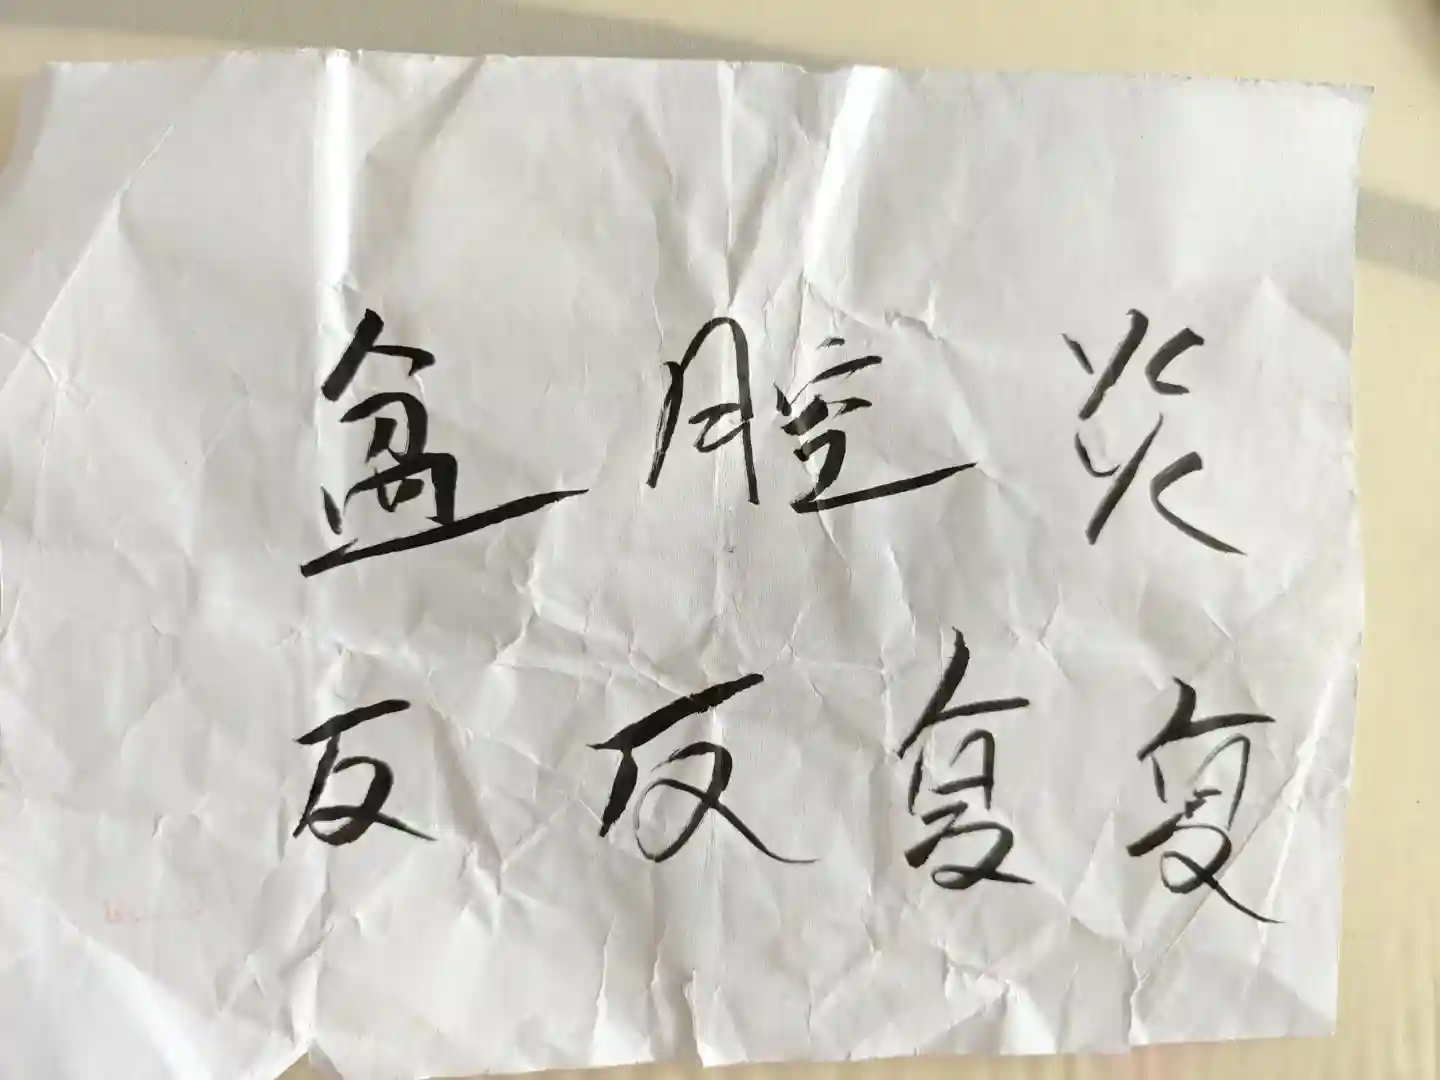 盆腔炎
反反复复